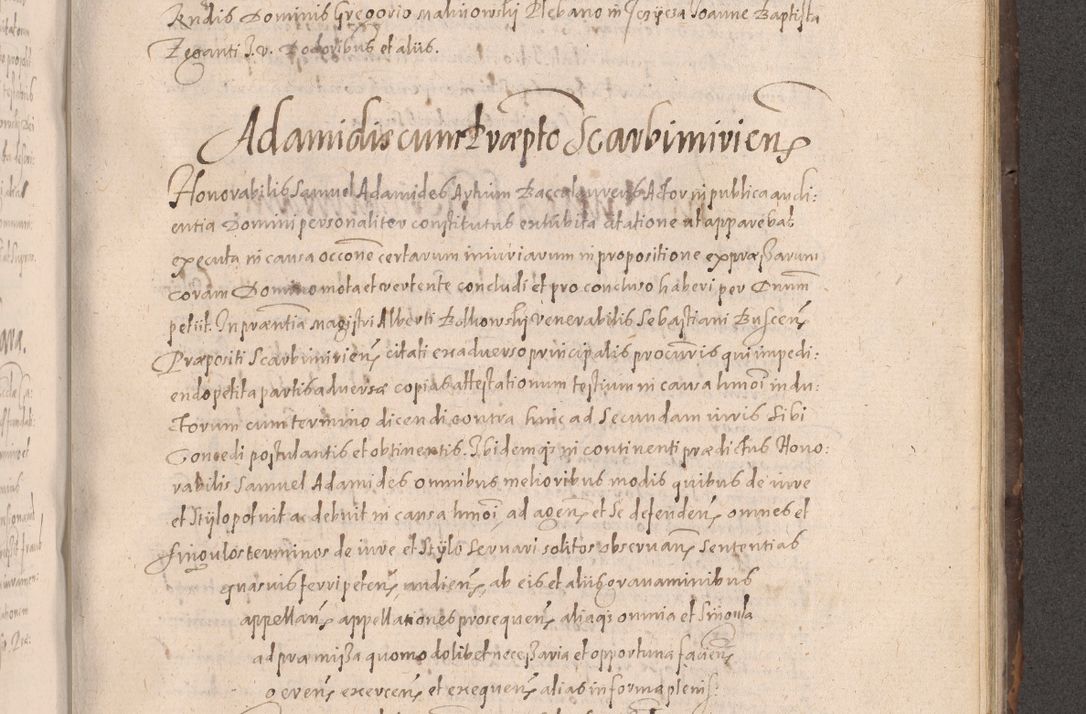 Rndis Dominis Gregorio Malinowskj Plebano in Joanne Baptista
Zeganti J. v. Doctoribus et aliis.
Adamidis cum Præpto Scarbimirien
Honorabilis Samuel Adamides Artium Baccalaureus Actor in publica audi:
entia Domini personaliter constitutus exhibita citatione ut apparebat
executa in causa occone certarum iniuriarum in propositione expræssarum
coram Domino mota et vertente concludi et pro concluso haberi per Dnum
petiit. In præntia Magistri Alberti Bolkowskj venerabilis Sebastiani Buscen
Præpositi Scarbimirien citati ex adverso principalis procuris qui impedi:
endo petita partis adversæ copias attestationum testium in causa hmoi indu:
ctorum cum termino dicendi contra hinc ad secundam iuris Sibi
Concedi postulantis et obtinentis. Ibidemqz in continenti prædictus Hono:
rabilis Samuel Adamides omnibus melioribus modis quibus de iure
et Stylo potuit ac debuit in causa hmoi, ad agen et se defenden omnes et
singulos terminos de iure et Stylo servari solitos observan Sententias
quasvis ferri peten, audien, ab eis et aliis gravaminibus
appellan appellationes prosequen aliaqz omnia et singula
ad præmissa quomodolibet necessaria et opportuna facien
geren exercen et exequen alias in forma pleniss: